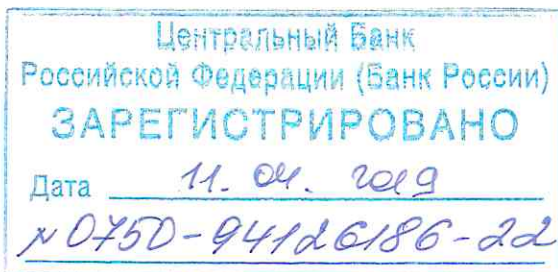 Центральный Банк
Российской Федерации (Банк России)
ЗАРЕГИСТРИРОВАНО
Дата 11. 04. 2019
№ 0750-94126186-22